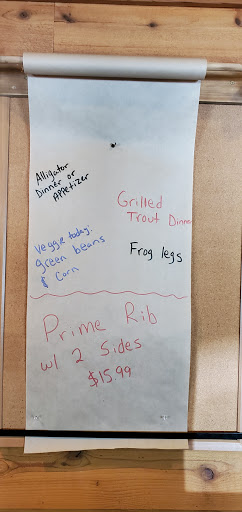 Alligator
Dinner or
Appetizer
Grilled
Trout Dinner
Veggie today:
green beans
& Corn
Frog legs
Prime Rib
w/ 2 Sides
$15.99